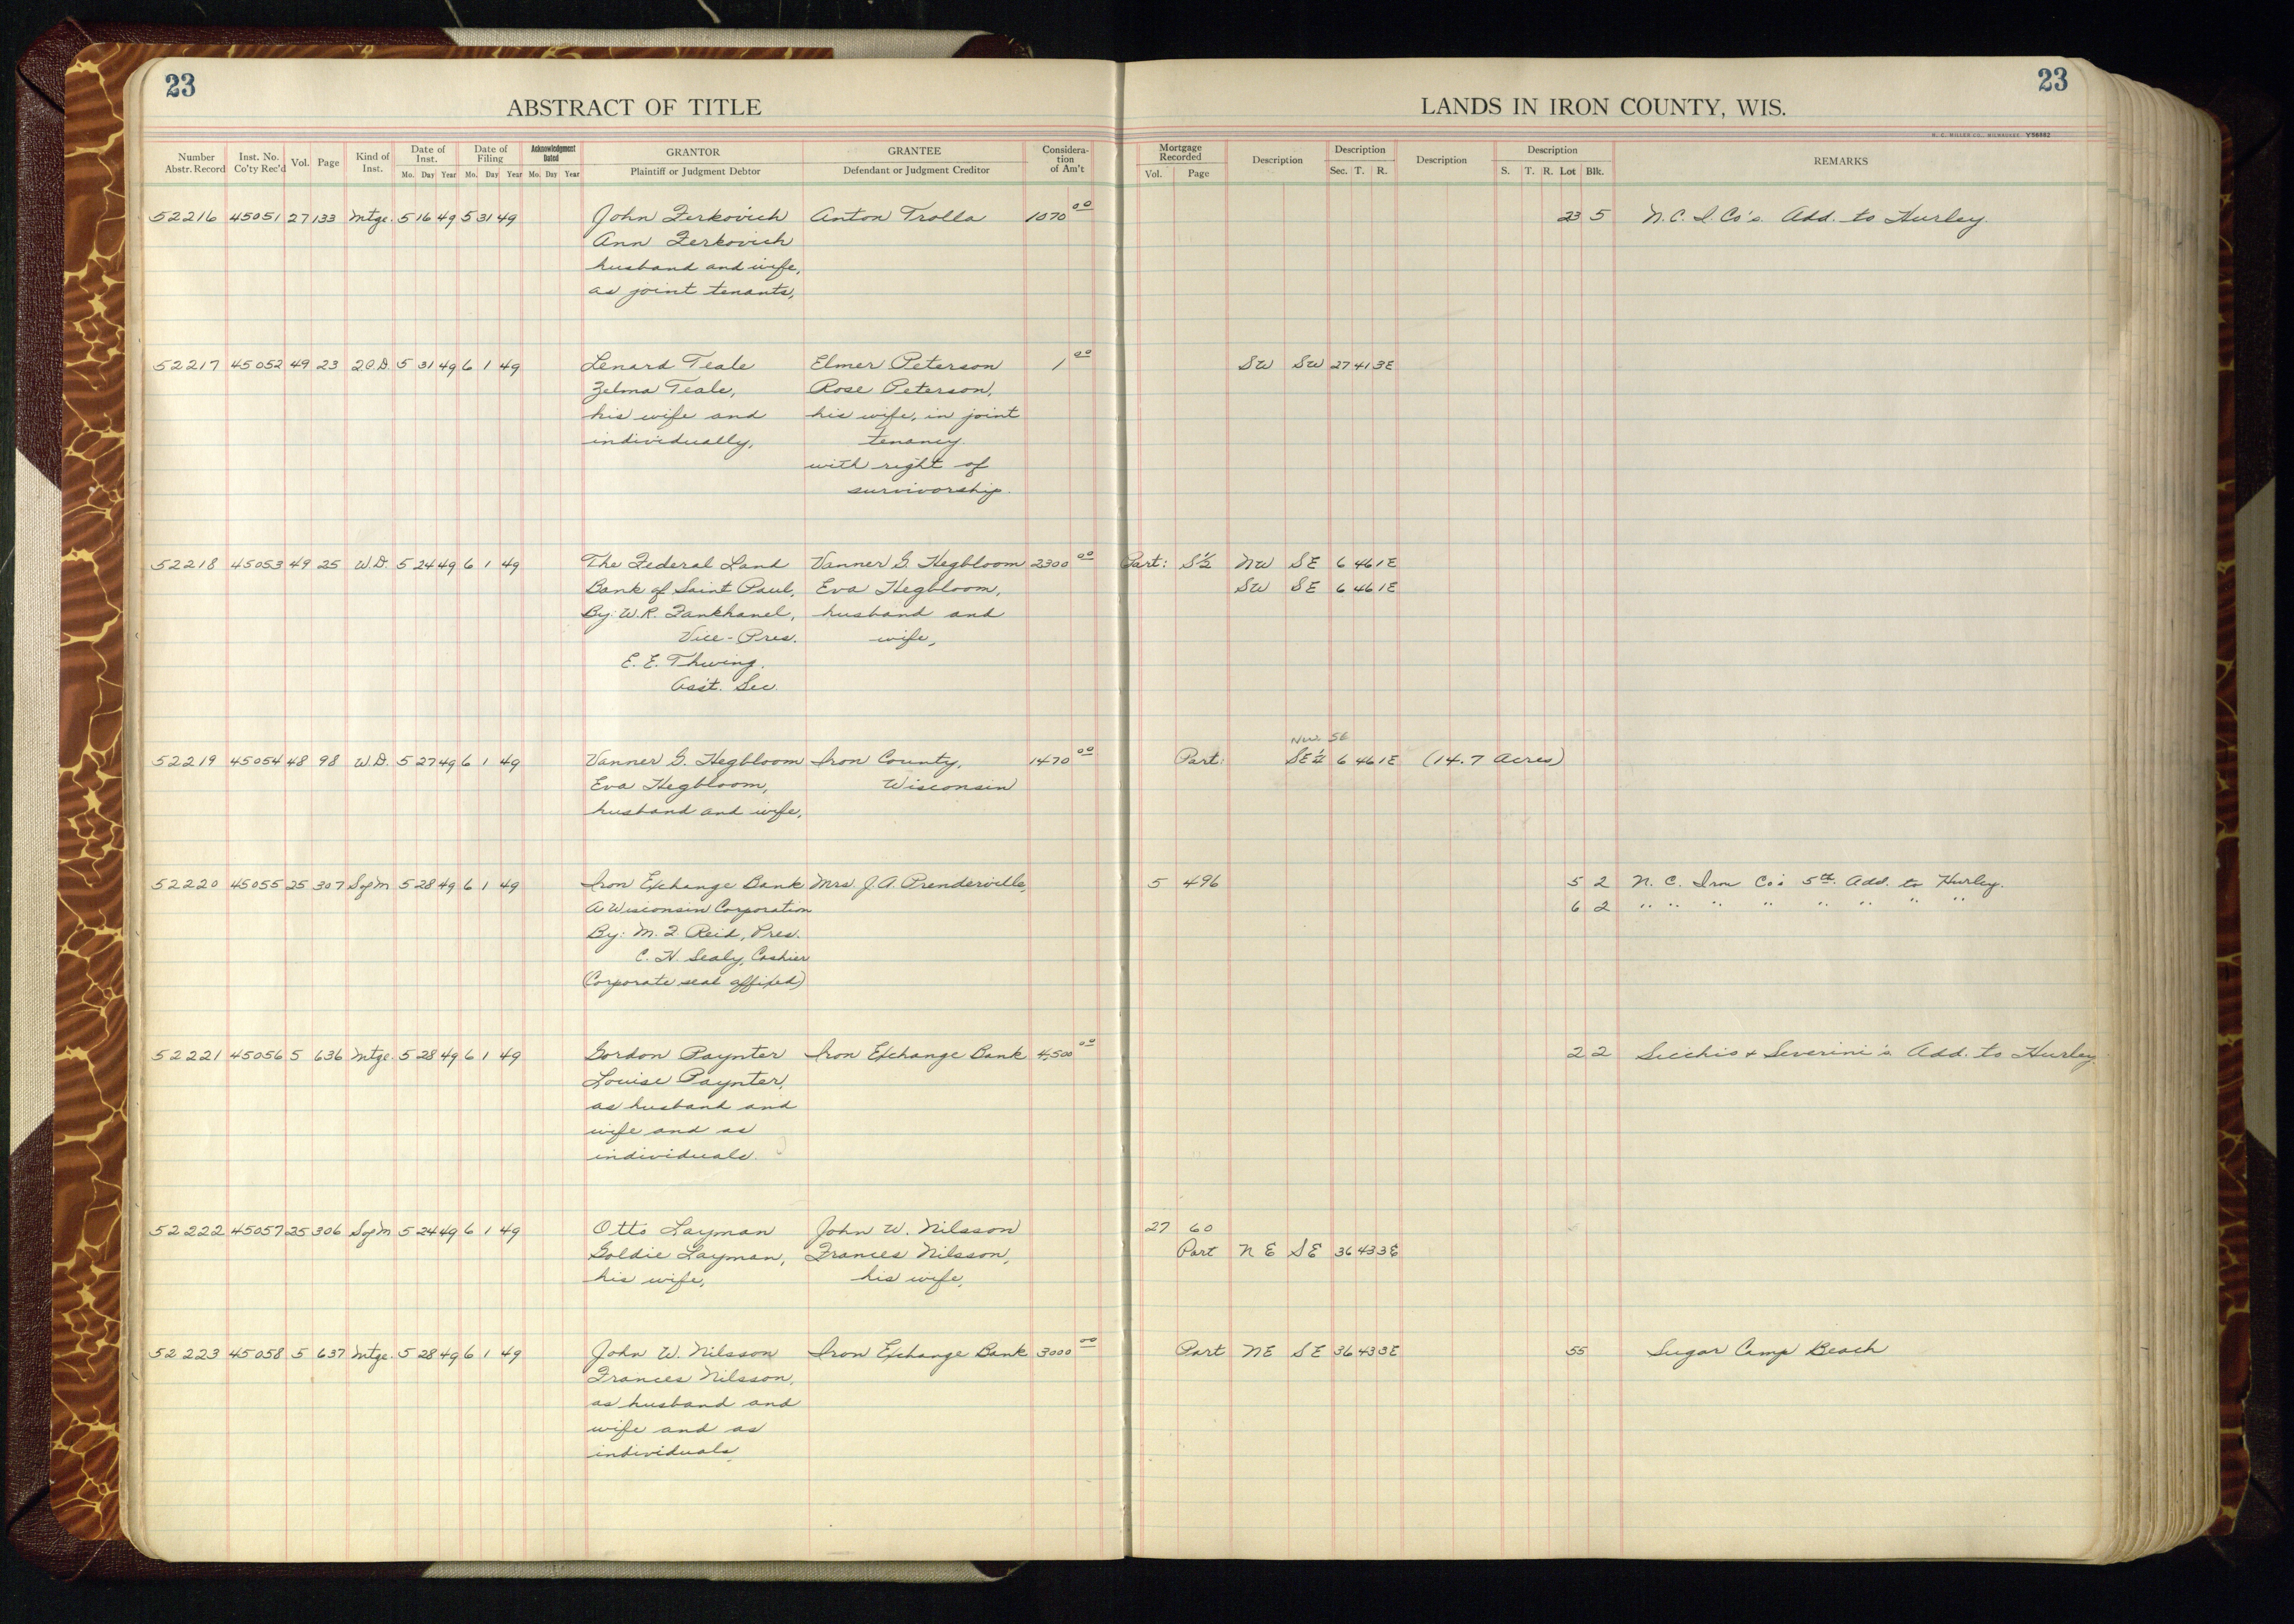 23
ABSTRACT OF TITLE
LANDS IN IRON COUNTY, WIS.
23
H. C. MILLER CO., MILWAUKEE Y58882
Number Abstr. Record Inst. No. Co'ty Rec'd Vol. Page Kind of Inst. Date of Inst. Mo. Day Year Date of Filing Mo. Day Year Acknowledgment Dated Mo. Day Year GRANTOR Plaintiff or Judgment Debtor GRANTEE Defendant or Judgment Creditor Considera-tion of Am't Mortgage Recorded Vol. Page Description Description Sec. T. R. Description Description S. T. R. Lot Blk. REMARKS
52216 45051 27 133 Mtge. 5 16 49 5 31 49 John Zerkovich Anton Trolla 1070 00 23 5 N.C.I. Co's. Add. to Hurley.
Ann Zerkovich
husband and wife,
as joint tenants,
52217 45052 49 23 2.C.D. 5 31 49 6 1 49 Lenard Teale Elmer Peterson 1 00 SW SW 27 41 3E
Zelma Teale, Rose Peterson,
his wife and his wife, in joint
individually, tenancy
with right of
survivorship.
52218 45053 49 25 W.D. 5 24 49 6 1 49 The Federal Land Vanner G. Hegbloom 2300 00 Part: S½ NW SE 6 46 1E
Bank of Saint Paul, Eva Hegbloom, SW SE 6 46 1E
By: W.R. Fankhanel, husband and
Vice-Pres. wife,
E. E. Thwing.
Ass't. Sec.
NW SE
52219 45054 48 98 W.D. 5 27 49 6 1 49 Vanner G. Hegbloom Iron County, 1470 00 Part: SE¼ 6 46 1E (14.7 Acres)
Eva Hegbloom, Wisconsin
husband and wife,
52220 45055 25 307 SofM 5 28 49 6 1 49 Iron Exchange Bank Mrs. J.A. Prenderville, 5 496 5 2 N. C. Iron Co's 5th. Add. to Hurley.
A Wisconsin Corporation 6 2 " " " " " " " "
By: M. J. Reid, Pres.
C. H. Sealy, Cashier
(Corporate seal affixed)
52221 45056 5 636 Mtge. 5 28 49 6 1 49 Gordon Paynter Iron Exchange Bank 4,500 00 2 2 Secchio + Severini's Add. to Hurley.
Louise Paynter,
as husband and
wife and as
individuals.
52222 45057 25 306 SofM 5 24 49 6 1 49 Otto Layman John W. Nilsson 27 60
Goldie Layman, Frances Nilsson, Part NE SE 36 43 3E
his wife, his wife,
52223 45058 5 637 Mtge. 5 28 49 6 1 49 John W. Nilsson Iron Exchange Bank 3000 00 Part NE SE 36 43 3E 55 Sugar Camp Beach
Frances Nilsson,
as husband and
wife and as
individuals,